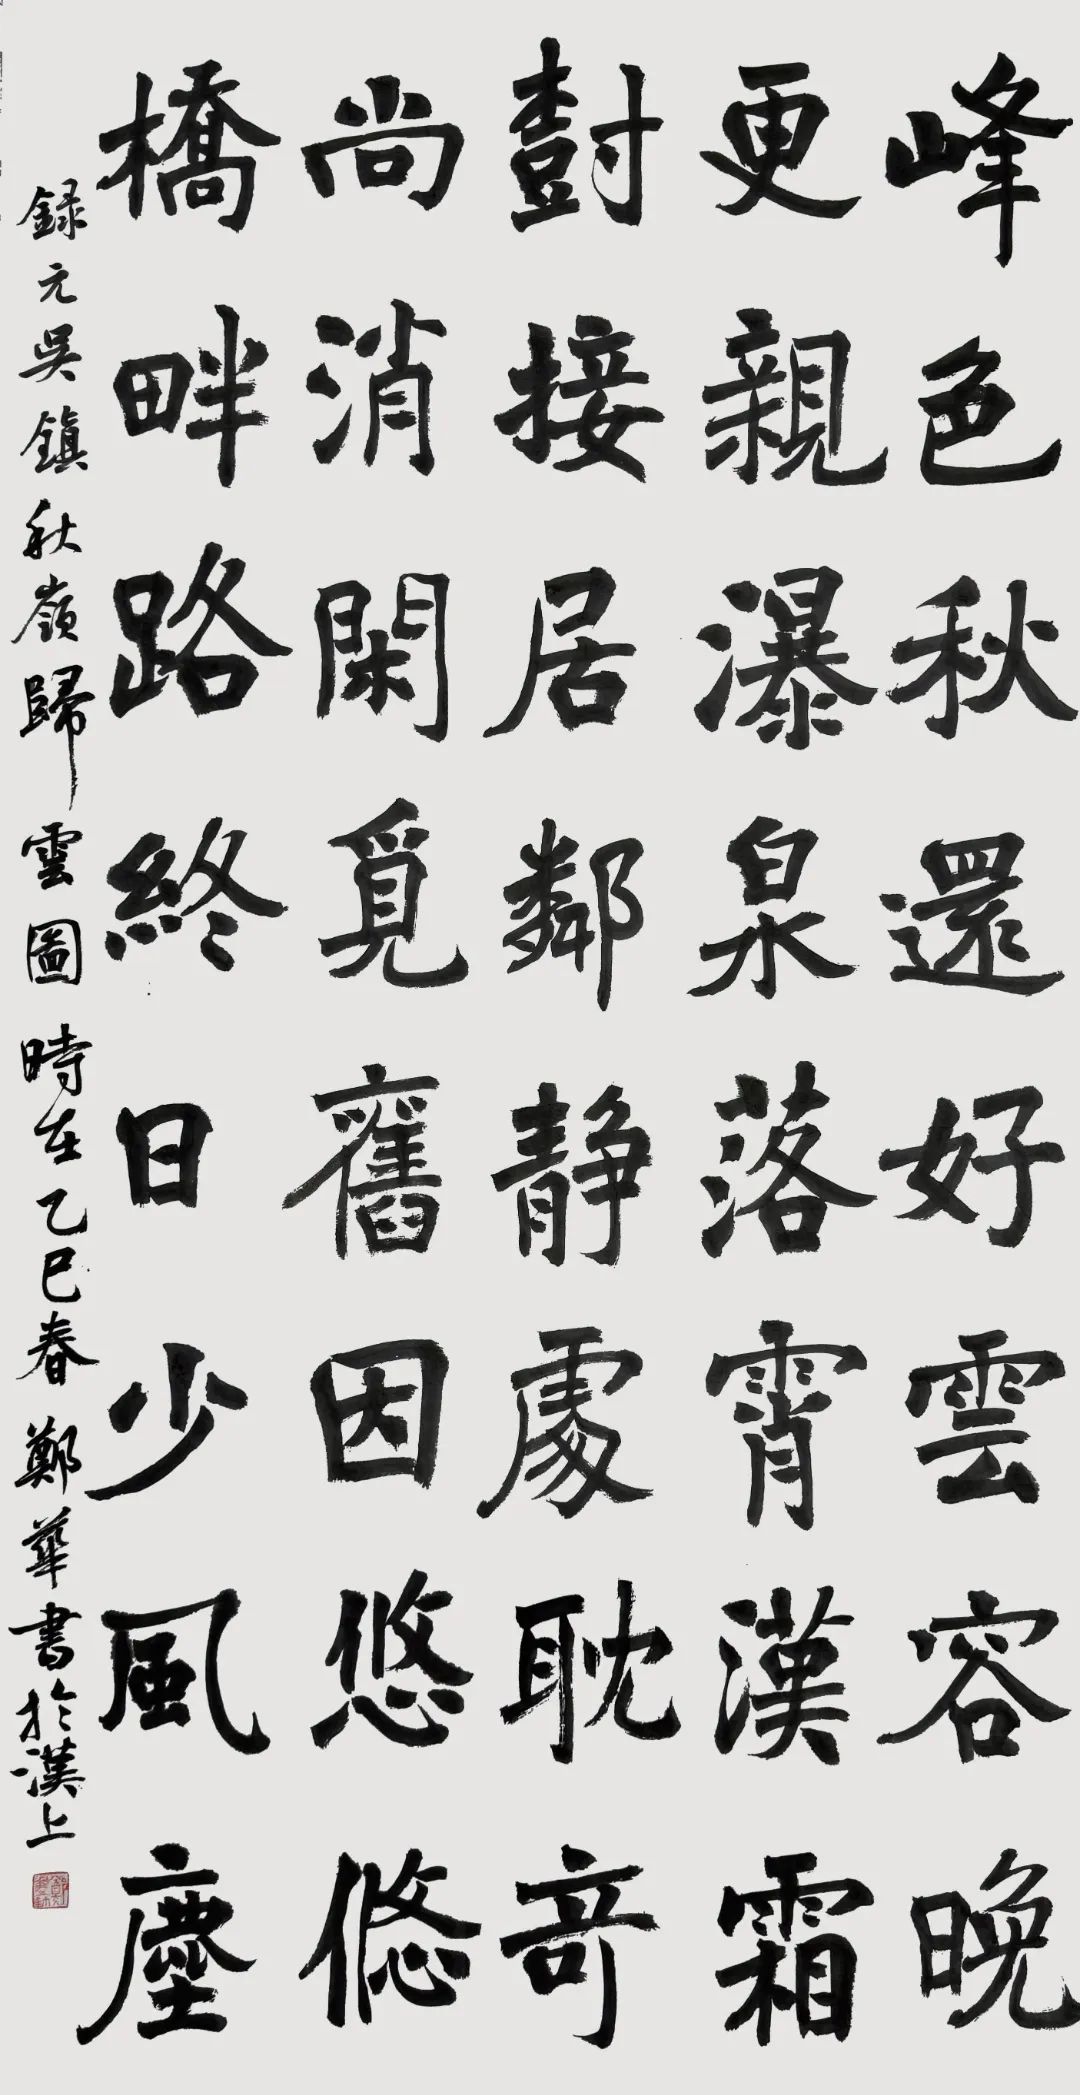 峰色秋還好雲容晚
更親瀑泉落霄漢霜
樹接居鄰静處耽奇
尚消閑覓舊因悠悠
橋畔路終日少風塵
録元吳鎮秋嶺歸雲圖 時在乙巳春 鄭華書於漢上